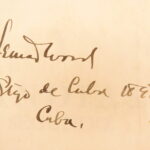 Leonard Wood
Stgo de Cuba 189
Cuba.